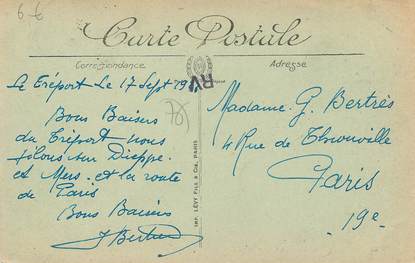 6-€
Carte Postale
Correspondance
Adresse
Le Tréport Le 17 Sept 19
RV
Bons Baisers
du Tréport nous
filons sur Dieppe.
et Mers. et la route
de Paris
Bons Baisers
J Bertrès
IMP. LÉVY FILS & Cie, PARIS
Madame. G. Bertrès
4 Rue de Thionville
Paris
- 19e -